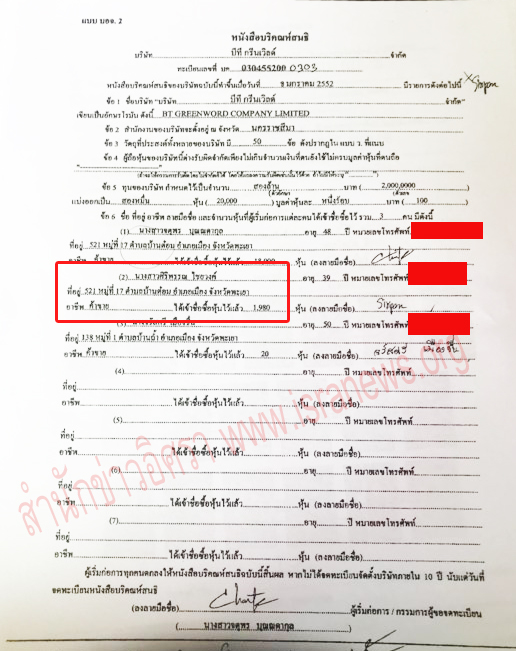 แบบ บอจ. 2
หนังสือบริคณห์สนธิ
บริษัท บีที กรีนเวิลด์ จำกัด
ทะเบียนเลขที่ บค. 030455200 0303
หนังสือบริคณห์สนธิของบริษัทขอจดนี้ทำขึ้นเมื่อวันที่ มกราคม 2552 มีรายการดังต่อไปนี้
ข้อ 1 ชื่อบริษัท "บริษัท บีที กรีนเวิลด์ จำกัด"
เขียนเป็นอักษรโรมัน ดังนี้ BT GREENWORD COMPANY LIMITED
ข้อ 2 สำนักงานของบริษัทจะตั้งอยู่ ณ จังหวัด นครราชสีมา
ข้อ 3 วัตถุที่ประสงค์ทั้งหลายของบริษัท มี 50 ข้อ ดังปรากฏใน แบบ ว. ที่แนบ
ข้อ 4 ผู้ถือหุ้นของบริษัทนี้ต่างรับผิดจำกัดเพียงไม่เกินจำนวนเงินที่ตนยังใช้ไม่ครบมูลค่าหุ้นที่ตนถือ
ข้อ 5 ทุนของบริษัท กำหนดไว้เป็นจำนวน สองล้าน บาท ( 2,000,0000 )
แบ่งออกเป็น สองหมื่น หุ้น ( 20,000 ) มูลค่าหุ้นละ หนึ่งร้อย บาท ( 100 )
ข้อ 6 ชื่อ ที่อยู่ อาชีพ ลายมือชื่อ และจำนวนหุ้นที่ผู้เริ่มก่อการแต่ละคนได้เข้าชื่อซื้อไว้ รวม 3 คน มีดังนี้
(1) นางสาวจตุพร บุณฒดากุล อายุ 48 ปี หมายเลขโทรศัพท์
ที่อยู่ 521 หมู่ที่ 17 ตำบลบ้านต๋อม อำเภอเมือง จังหวัดพะเยา
อาชีพ ค้าขาย ได้เข้าชื่อซื้อหุ้นไว้แล้ว 18,000 หุ้น (ลงลายมือชื่อ)
(2) นางสาวศิริพรรณ ไชยวงค์ อายุ 39 ปี หมายเลขโทรศัพท์
ที่อยู่ 521 หมู่ที่ 17 ตำบลบ้านต๋อม อำเภอเมือง จังหวัดพะเยา
อาชีพ ค้าขาย ได้เข้าชื่อซื้อหุ้นไว้แล้ว 1,980 หุ้น (ลงลายมือชื่อ)
(3) อายุ 50 ปี หมายเลขโทรศัพท์
ที่อยู่ 138 หมู่ที่ 1 ตำบลบ้านถ้ำ อำเภอเมือง จังหวัดพะเยา
อาชีพ ค้าขาย ได้เข้าชื่อซื้อหุ้นไว้แล้ว 20 หุ้น (ลงลายมือชื่อ)
(4) อายุ ปี หมายเลขโทรศัพท์
ที่อยู่
อาชีพ ได้เข้าชื่อซื้อหุ้นไว้แล้ว หุ้น (ลงลายมือชื่อ)
(5) อายุ ปี หมายเลขโทรศัพท์
ที่อยู่
อาชีพ ได้เข้าชื่อซื้อหุ้นไว้แล้ว หุ้น (ลงลายมือชื่อ)
(6) อายุ ปี หมายเลขโทรศัพท์
ที่อยู่
อาชีพ ได้เข้าชื่อซื้อหุ้นไว้แล้ว หุ้น (ลงลายมือชื่อ)
(7) อายุ ปี หมายเลขโทรศัพท์
ที่อยู่
อาชีพ ได้เข้าชื่อซื้อหุ้นไว้แล้ว หุ้น (ลงลายมือชื่อ)
ผู้เริ่มก่อการทุกคนตกลงให้หนังสือบริคณห์สนธิฉบับนี้สิ้นผล หากไม่ได้จดทะเบียนจัดตั้งบริษัทภายใน 10 ปี นับแต่วันที่
จดทะเบียนหนังสือบริคณห์สนธิ
(ลงลายมือชื่อ) ผู้เริ่มก่อการ / กรรมการผู้ขอจดทะเบียน
( นางสาวจตุพร บุณฒดากุล )
สำนักข่าวอิศรา www.isranews.org